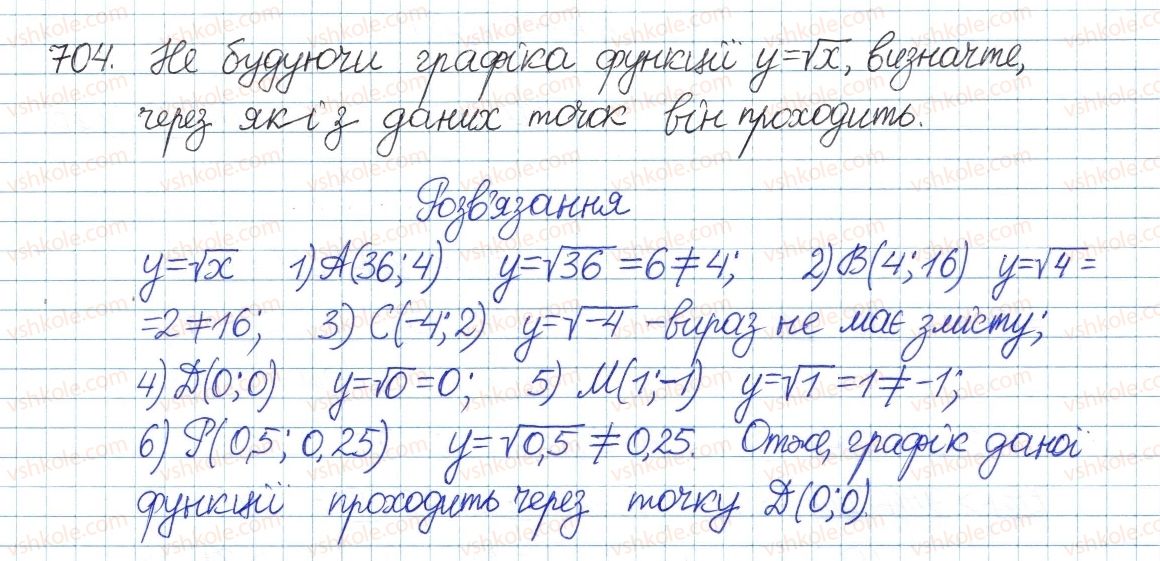 704. Не будуючи графіка функції y=√x, визначте,
через які із даних точок він проходить.
Розв'язання
y=√x 1) A(36; 4) y=√36 =6≠4; 2) B(4; 16) y=√4=
=2≠16; 3) C(-4; 2) y=√-4 -вираз не має змісту;
4) D(0; 0) y=√0=0; 5) M(1; -1) y=√1=1≠-1;
6) P(0,5; 0,25) y=√0,5≠0,25. Отже, графік даної
функції проходить через точку D(0;0).